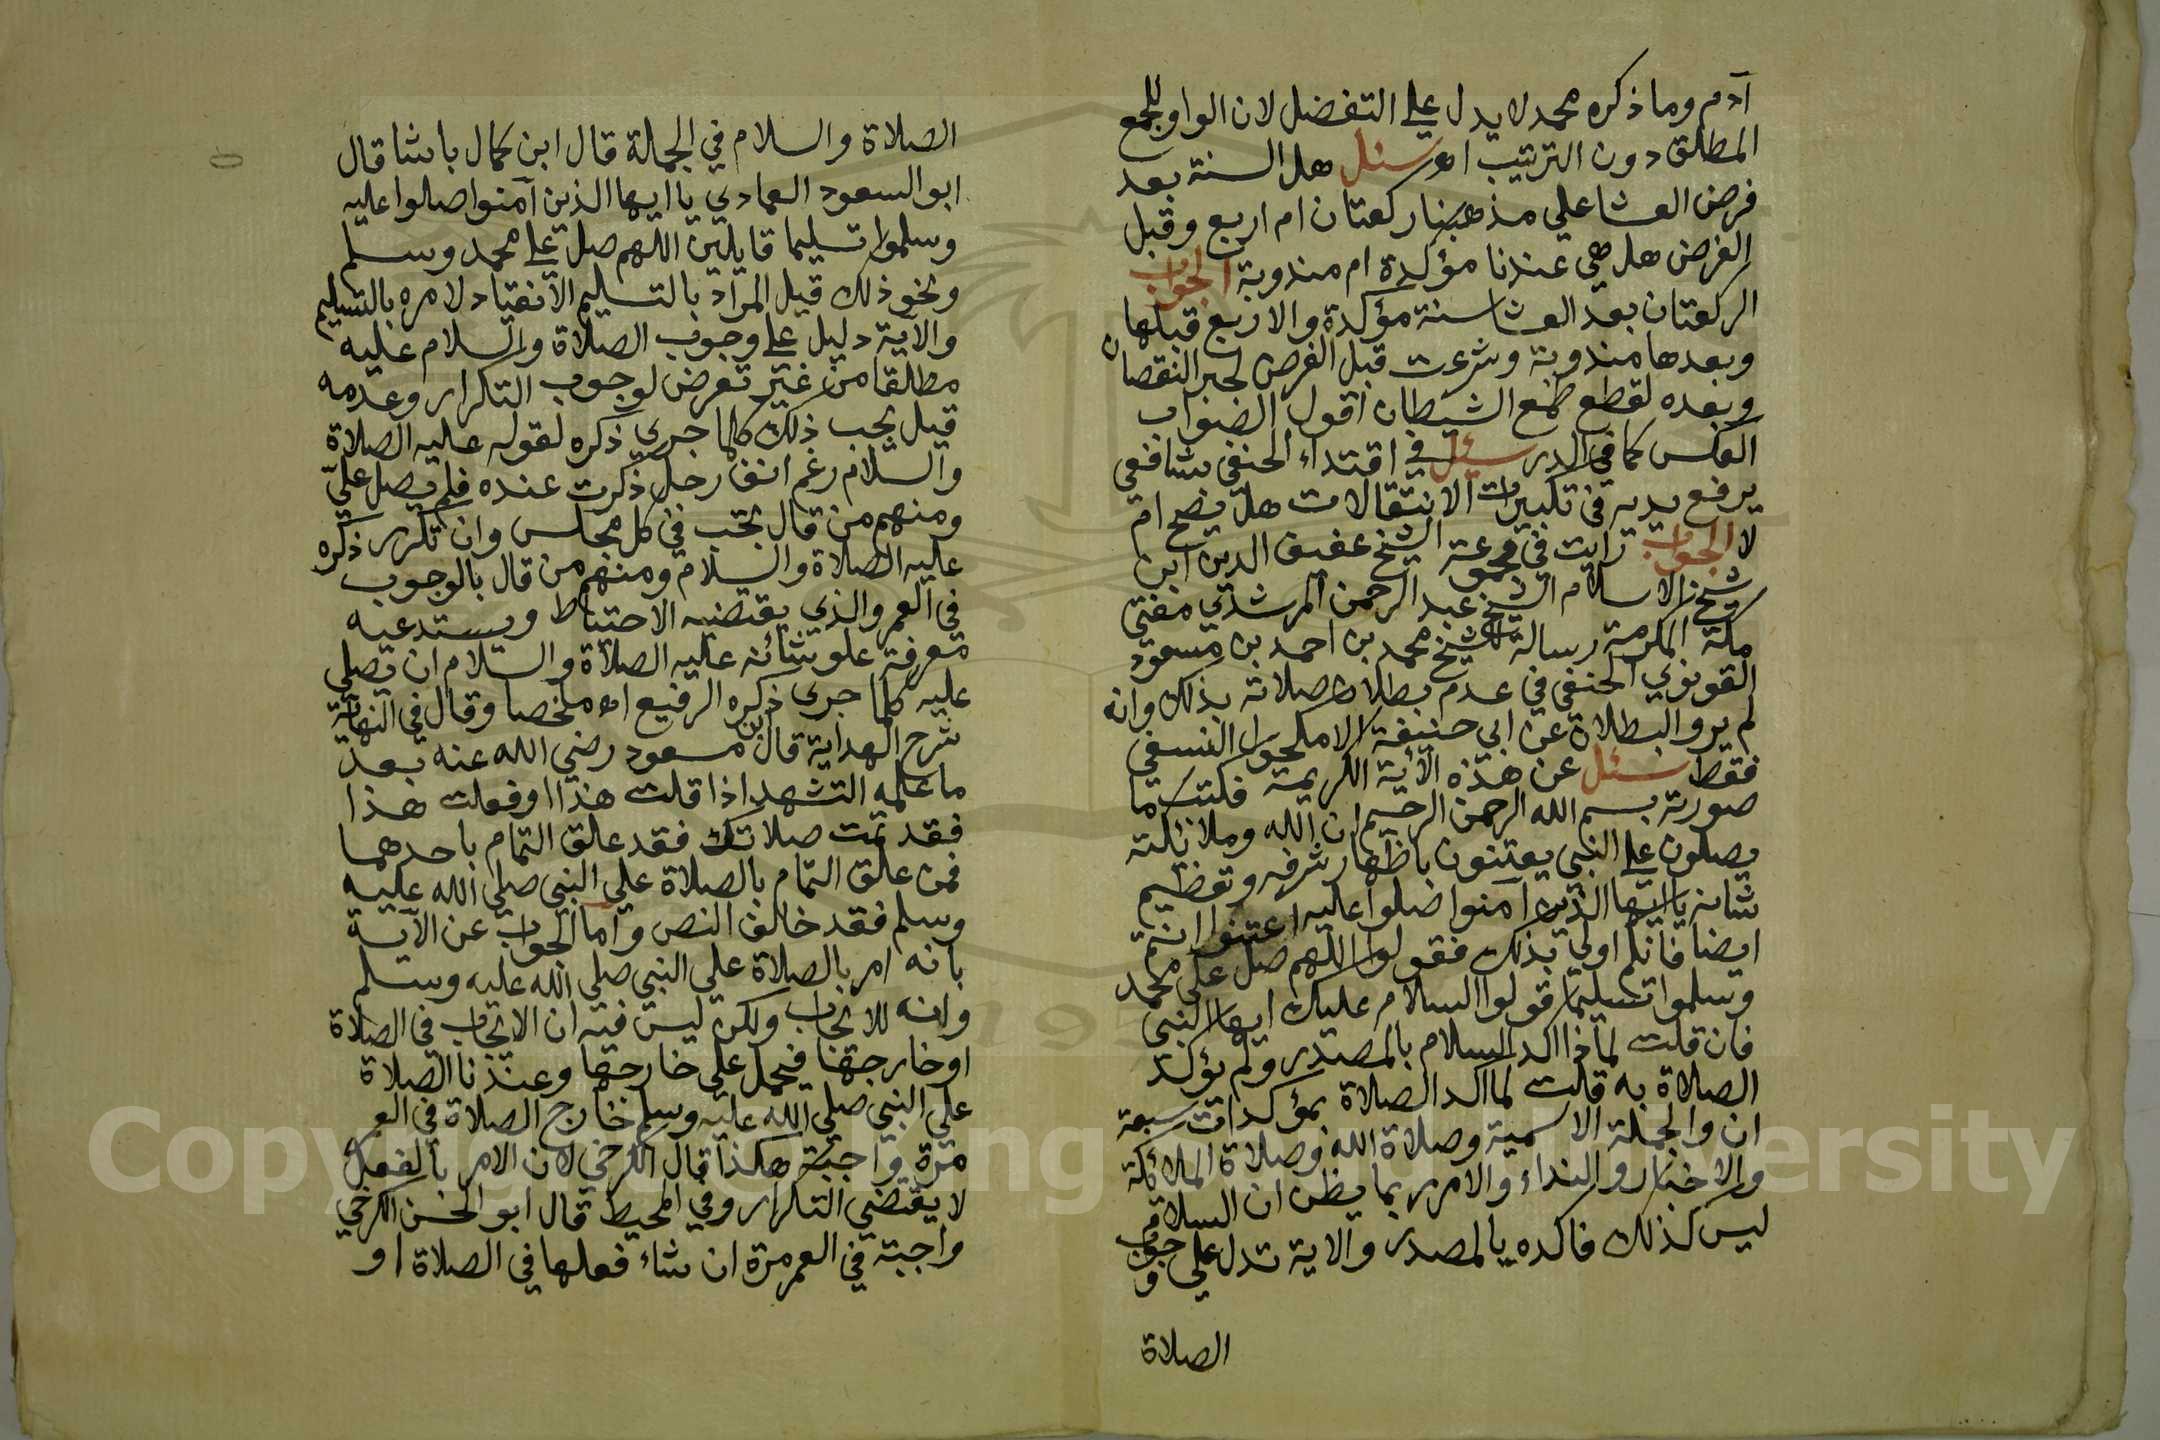 آدم وما ذكره محمد لا يدل على التفضل لان الواو للجمع
المطلق دون الترتيب اهـ سئل هل السنة بعد
فرض العشا على مذهبنا ركعتان ام اربع وقبل
الفرض هل هي عندنا مؤكدة ام مندوبة الجواب
الركعتان بعد العشا سنة مؤكدة والاربع قبلها
وبعدها مندوبة وشرعت قبل الفرض لجبر النقصان
وبعده لقطع طمع الشيطان اقول الصواب
العكس كما في الدر سئل في اقتداء الحنفي بشافعي
يرفع يديه في تكبيرات الانتقالات هل يصح ام
لا الجواب رايت في مجموعة الشيخ عفيف الدين ابن
شيخ الاسلام الشيخ عبد الرحمن المرشدي مفتي
مكة المكرمة رسالة للشيخ محمد بن احمد بن مسعود
القونوي الحنفي في عدم بطلان صلاته بذلك وانه
لم يرو البطلان عن ابي حنيفة الا مكحول النسفي
فقط سئل عن هذه الآية الكريمة فكتب ما
صورته بسم الله الرحمن الرحيم ان الله وملائكته
يصلون على النبي يعتنون باظهار شرفه وتعظيم
شانه يا ايها الذين آمنوا صلوا عليه اعتنوا انتم
ايضا فانكم اولى بذلك فقولوا اللهم صل على محمد
وسلموا تسليما قولوا السلام عليك ايها النبي
فان قلت لماذا اكد السلام بالمصدر ولم يؤكد
الصلاة به قلت لما اكد الصلاة بمؤكدات سبعة
ان والجملة الاسمية وصلاة الله وصلاة الملائكة
والاخبار والنداء والامر ربما يظن ان السلام
ليس كذلك فاكده بالمصدر والاية تدل على وجوب
الصلاة
الصلاة والسلام في الجملة قال ابن كمال باشا قال
ابو السعود العمادي يا ايها الذين آمنوا صلوا عليه
وسلموا تسليما قايلين اللهم صل على محمد وسلم
ونحو ذلك قيل المراد بالتسليم الانقياد لامره بالتسليم
والآية دليل على وجوب الصلاة والسلام عليه
مطلقا من غير تعرض لوجوب التكرار وعدمه
قيل يجب ذلك كلما جرى ذكره لقوله عليه الصلاة
والسلام رغم انف رجل ذكرت عنده فلم يصل علي
ومنهم من قال يجب في كل مجلس وان تكرر ذكره
عليه الصلاة والسلام ومنهم من قال بالوجوب
في العمر والذي يقتضيه الاحتياط ويستدعيه
معرفة علو شانه عليه الصلاة والسلام ان يصلي
عليه كلما جرى ذكره الرفيع اهـ ملخصا وقال في النهاية
شرح الهداية قال ابن مسعود رضي الله عنه بعد
ما علمه التشهد اذا قلت هذا او فعلت هذا
فقد تمت صلاتك فقد علق التمام باحدهما
فمن علق التمام بالصلاة على النبي صلى الله عليه
وسلم فقد خالف النص واما الجواب عن الآية
بانه امر بالصلاة على النبي صلى الله عليه وسلم
وانه للايجاب ولكن ليس فيه ان الايجاب في الصلاة
او خارجها فيحمل على خارجها وعندنا الصلاة
على النبي صلى الله عليه وسلم خارج الصلاة في العمر
مرة واجبة هكذا قال الكرخي لان الامر بالفعل
لا يقتضي التكرار وفي المحيط قال ابو الحسن الكرخي
واجبة في العمر مرة ان شاء فعلها في الصلاة او